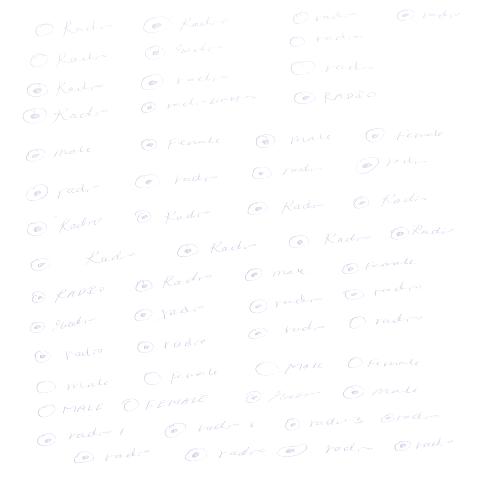 Radio Radio radio radio
Radio radio radio
Radio radio radio
Radio RADIO
male Female male female
radio radio radio radio
Radio Radio Radio Radio
Radio Radio Radio Radio
RADIO Radio male female
radio radio radio
radio radio radio radio
male female MALE Female
MALE FEMALE male
radio 1 radio radio 3 radio
radio radio radio radio